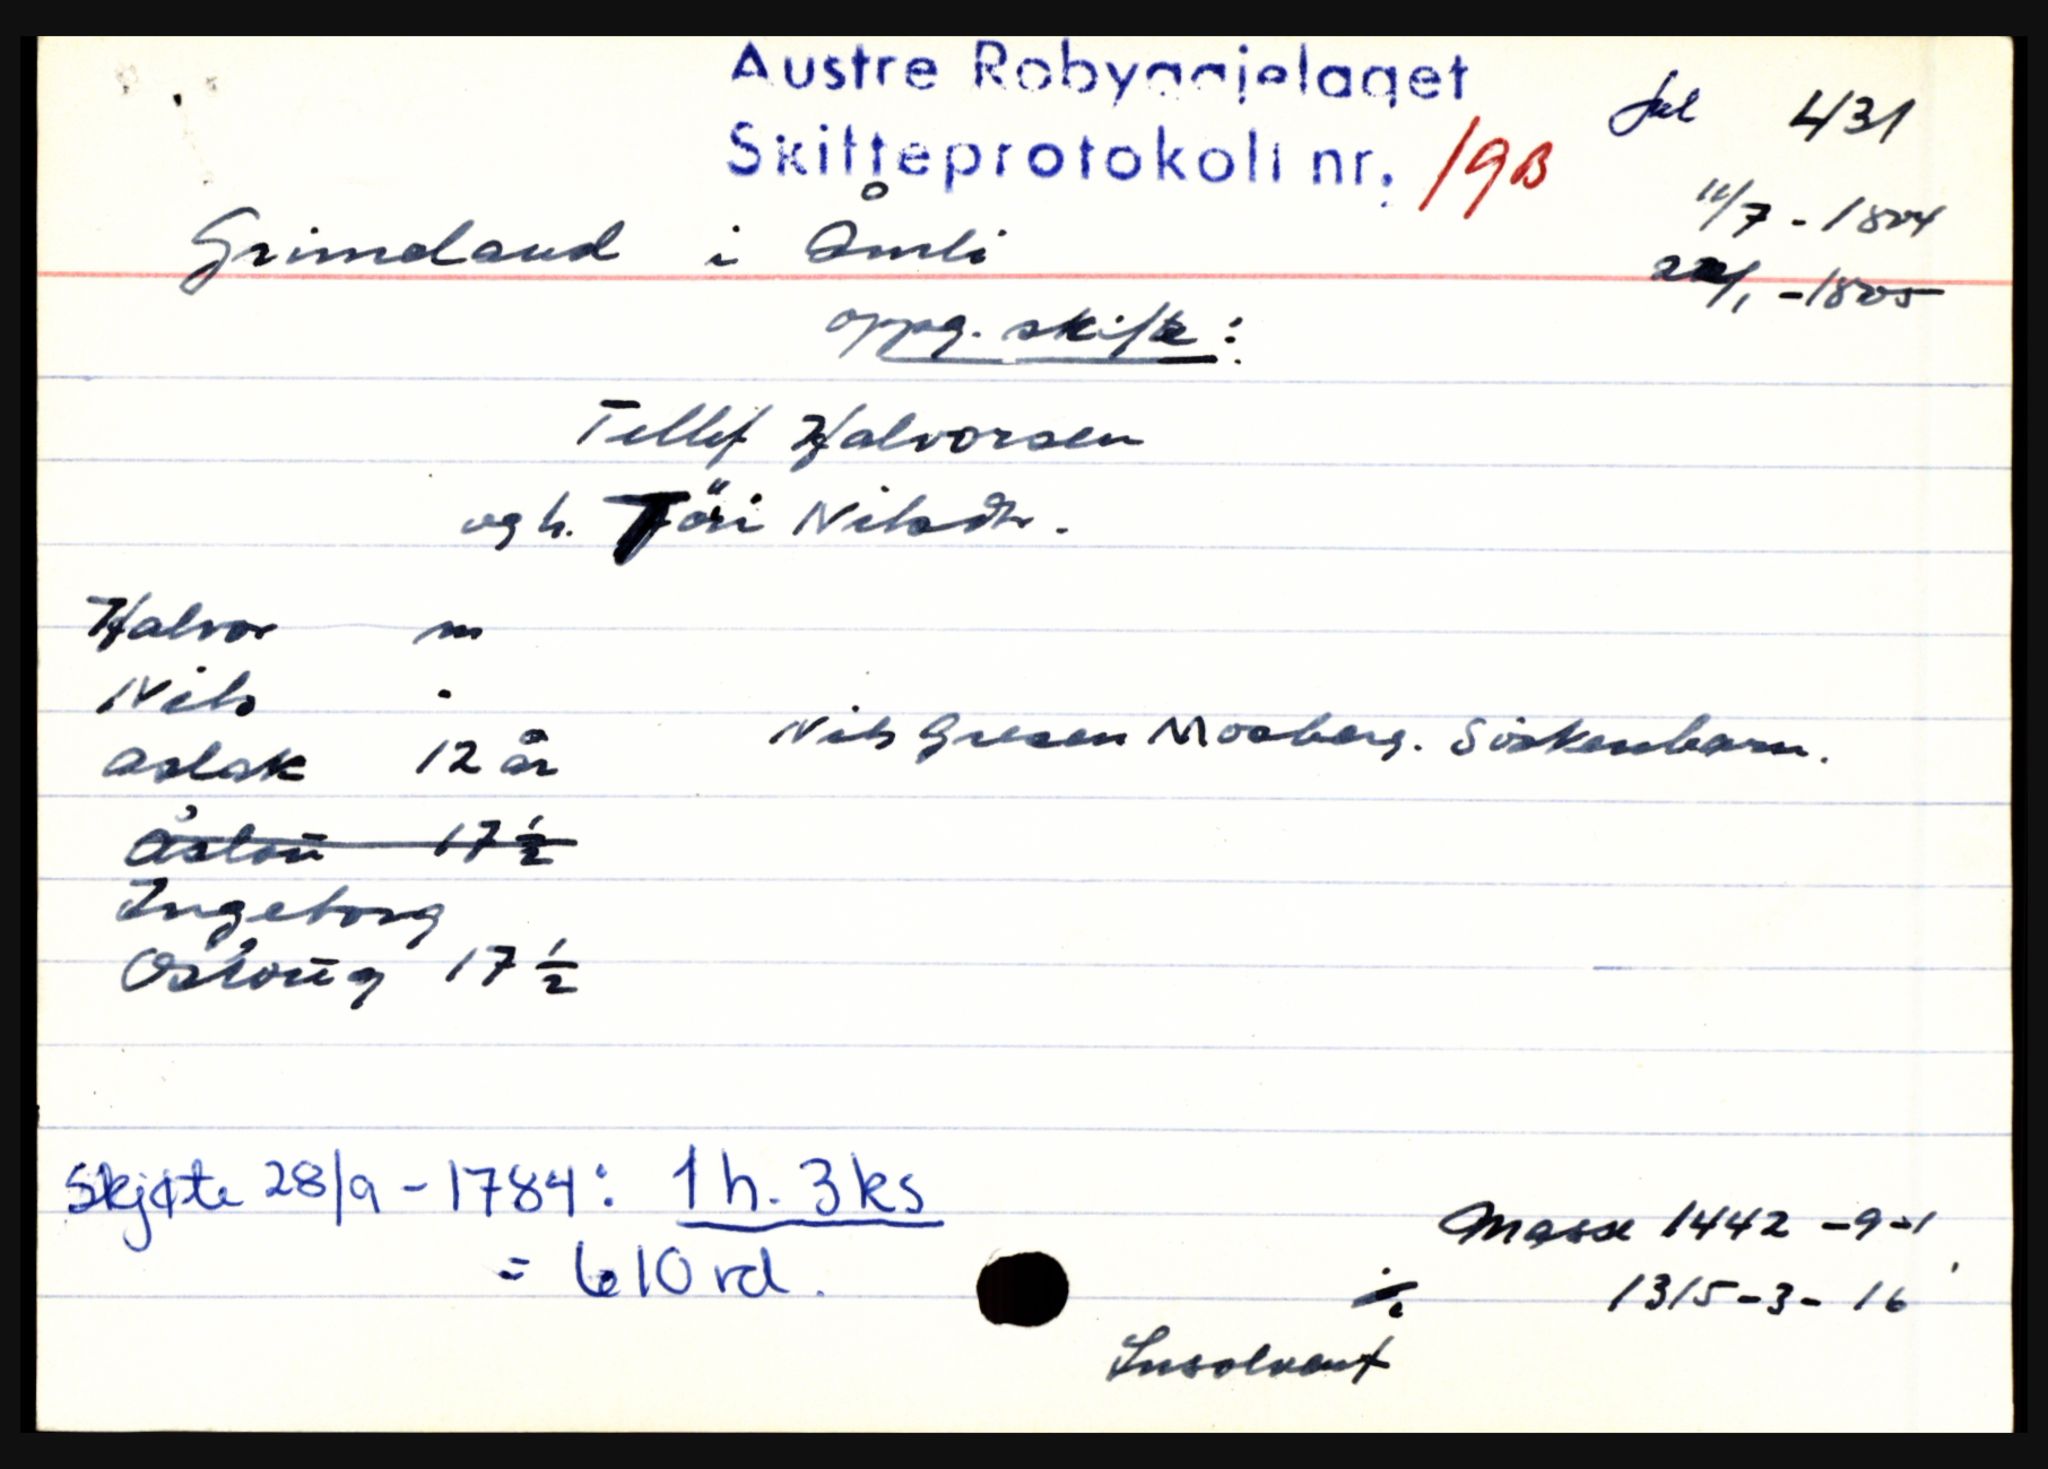 Austre Robyggjelaget
Skifteprotokoll nr. 19B
fol 431
11/7 - 1804
22/1 - 1805
Grimeland i Åmli
oppg. skifte:
Tellef Halvorsen
og h. Töri Nilsdtr.
Halvor m
Nils -
Aslak 12 år
Nils Gresen Mosberg. Söskenbarn.
Åslau 17 1/2
Ingeborg
Osloug 17 1/2
Skjøte 28/9 - 1784: 1 h. 3 ks
= 610 rd.
Masse 1442 - 9 - 1
÷ 1315 - 3 - 16
Insolvent